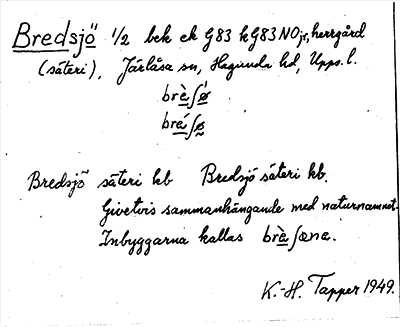 Bredsjö 1/2 bek ek G83 kG83NOjr, herrgård
(säteri), Järlåsa sn, Hagunda hd, Upps. l.
brèʃø̀
bréʃø
Bredsjö säteri kb Bredsjö säteri kb.
Givetvis sammanhängande med naturnamnet.
Inbyggarna kallas brèʃøna.
K.-H. Tapper 1949.